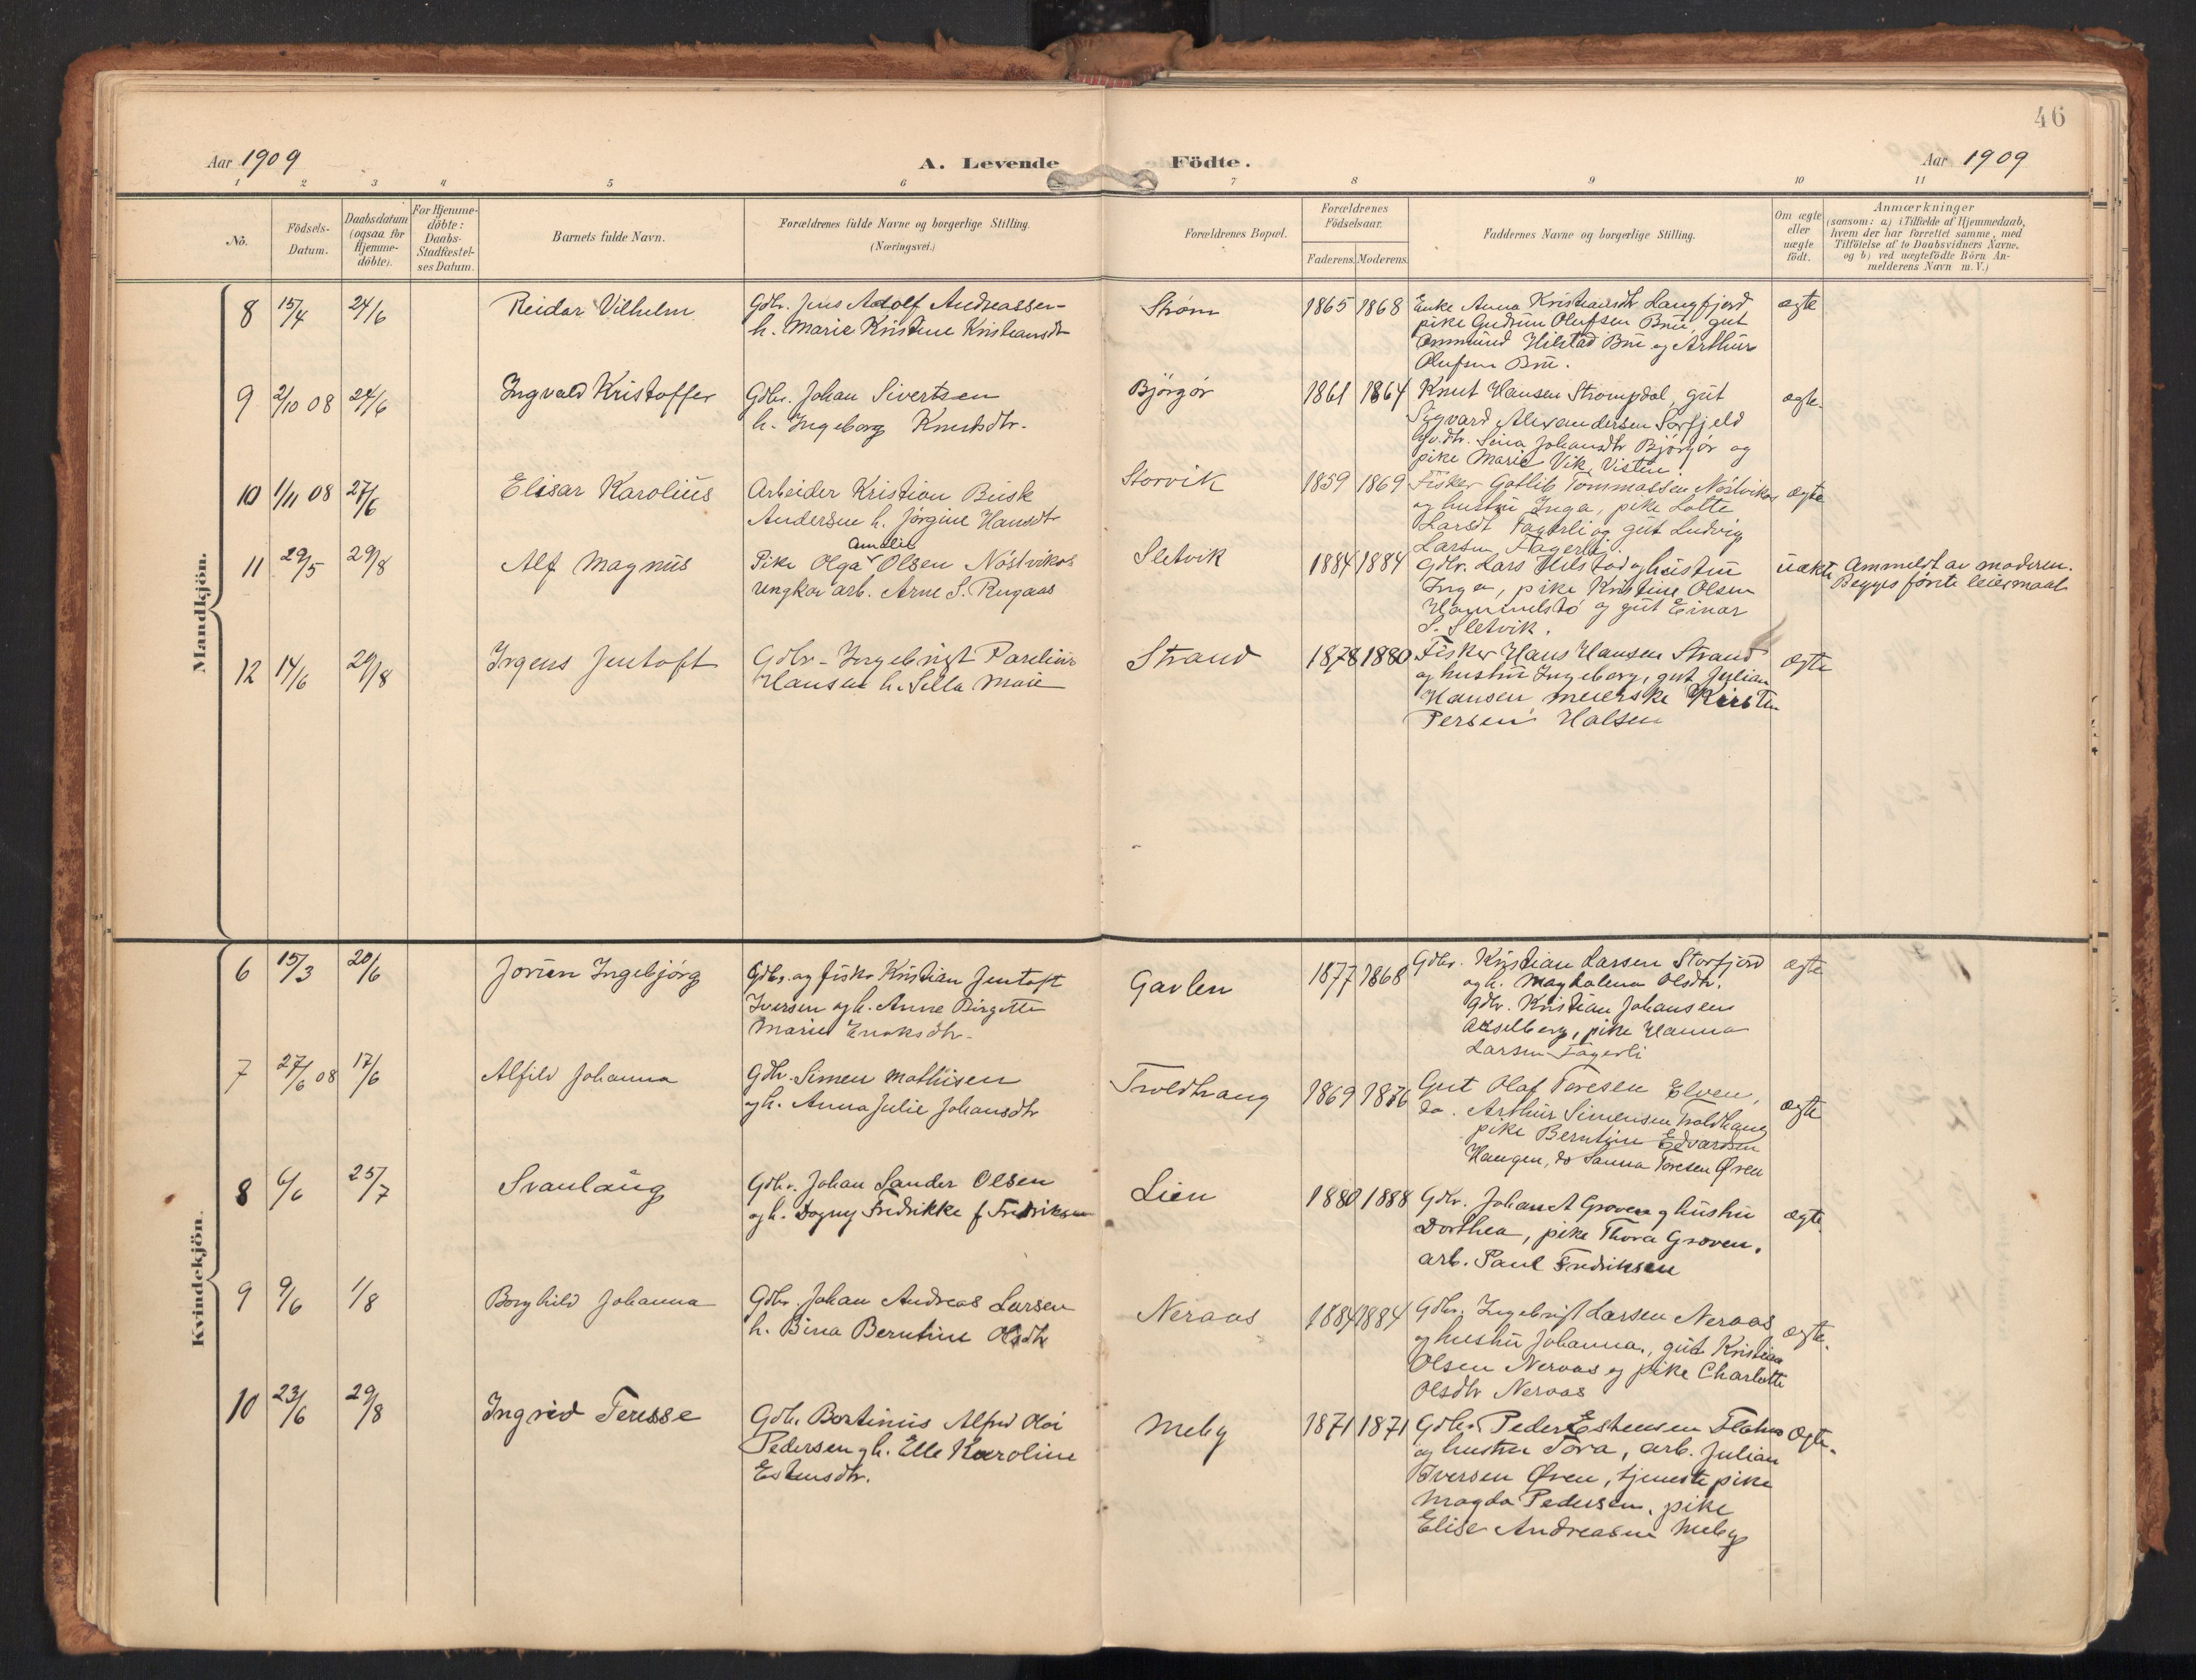 46
Aar 1909
A. Levende Födte.
Aar 1909
1 2 3 4 5 6 7 8 9 10 11
No.
Födsels-Datum.
Daabsdatum (ogsaa for Hjemme-döbte).
For Hjemme-döbte: Daabs-Stadfæstel-ses Datum.
Barnets fulde Navn.
Forældrenes fulde Navne og borgerlige Stilling. (Næringsvei.)
Forældrenes Bopæl.
Forældrenes Födselsaar.
Faderens. Moderens.
Faddernes Navne og borgerlige Stilling.
Om ægte eller uægte födt.
Anmærkninger
(saasom: a) i Tilfælde af Hjemmedaab,
hvem der har forrettet samme, med
Tilföielse af to Daabsvidners Navne.
og b) ved uægtefödte Börn An-
melderens Navn m. V.)
Mandkjön.
8 15/4 24/6 Reidar Vilhelm
Gdbr. Jens Adolf Andreassen
h. Marie Kristine Kristiansdtr
Strøm 1865 1868
Enke Anna Kristiansdtr Langfjord
pike Gudrun Olufsen Bru, gut
Ommund Hilstad Bru og Arthur
Olufsen Bru.
ægte
9 2/10 08 24/6 Ingvald Kristoffer
Gdbr. Johan Sivertsen
h. Ingeborg Knutsdtr.
Bjørgør 1861 1864
Knut Hansen Strompdal, gut
Sigvard Alexandersen Sørfjeld
Gdbr. Sina Johansdtr Bjørgør og
pike Marie Vik, Visten.
ægte.
10 1/11 08 27/6 Elisar Karolius
Arbeider Kristian Busk
Andersen h. Jørgine Hansdtr
Storvik 1859 1869
Fisker Gotlib Tommassen Nóstvikos
og hustru Inga, pike Lotte
Larsdt Fagerli og gut Ludvig
Larsen Fagerli.
ægte
11 29/5 29/8 Alf Magnus
Amalie
Pike Olga Olsen Nóstvikos
ungkar arb. Arne S. Rugaas
Sletvik 1884 1884
Gdbr. Lars Hilstad og hustru
Inga, pike Kristine Olsen
Hammelstó og gut Einar
S. Sletvik.
uekte
Ammeldt av moderen.
Begges første leiermaal
12 14/6 29/8 Irgens Jentoft
Gdbr. Ingebrigt Parelius
Hansen h. Sella Marie
Strand 1878 1880
Fisker Hans Hansen Strand
og hustru Ingeborg, gut Julian
Hansen, meierske Kirsten
Persen Halsen
ægte
Kvindekjön.
6 15/3 20/6 Jorun Ingebjørg
Gdbr. og fisker Kristian Jentoft
Iversen og h. Anne Birgitte
Marie Enoksdtr.
Gavlen 1877 1868
Gdbr. Kristian Larsen Storfjord
og h. Magdalena Olsdtr.
Gdbr. Kristian Johansen
Axselberg, pike Hanna
Larsen Fagerli
ægte
7 27/6 08 17/6 Alfild Johanna
Gdbr. Simen Mathisen
og h. Anna Julie Johansdtr
Troldhaug 1869 1876
Gut Olaf Toresen Elven,
do. Arthur Simensen Troldhaug
pike Berntine Edvardsen
Haugen, do Sanna Toresen Øren
ægte
8 6/6 25/7 Svanlaug
Gdbr. Johan Sander Olsen
og h. Dagny Fredrikke f Fredriksen
Lien 1880 1888
Gdbr. Johan A Groven og hustru
Dorthea, pike Thora Groven,
arb. Paul Fredriksen
ægte
9 9/6 1/8 Borghild Johanna
Gdbr. Johan Andreas Larsen
h. Bina Berntine Olsdtr
Neraas 1884 1884
Gdbr. Ingebrigt Larsen Neraas
og hustru Johanna., gut Kristian
Olsen Neraas og pike Charlotte
Olsdtr Neraas
ægte.
10 23/6 29/8 Ingrid Teresse
Gdbr. Bortinius Alfred Kloi
Pedersen og h. Elle Karoline
Estensdtr.
Meby 1871 1871
Gdbr. Peder Estensen Flatmo
og hustru Tora, arb. Julian
Iversen Øren, tjenestepike
Magda Pedersen, pike
Elise Andreasen Meby
Ægte.